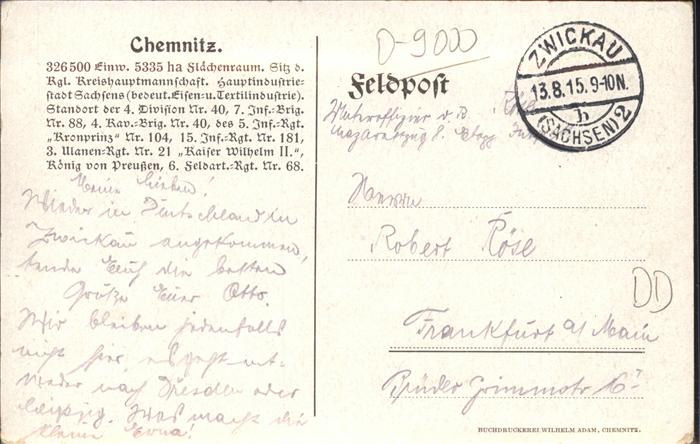 Chemnitz.
326500 Einw. 5335 ha Flächenraum. Sitz d.
Kgl. Kreishauptmannschaft. Hauptindustrie-
stadt Sachsens (bedeut. Eisen-u.Textilindustrie).
Standort der 4. Division Nr. 40, 7. Inf.-Brig.
Nr. 88, 4. Kav.-Brig. Nr. 40, des 5. Inf.-Rgt.
„Kronprinz" Nr. 104, 15. Inf.-Rgt. Nr. 181,
3. Ulanen-Rgt. Nr. 21 „Kaiser Wilhelm II.",
König von Preußen, 6. Feldart.-Rgt. Nr. 68.
Meine Lieben!
Wieder in Deutschland in
Zwickau angekommen,
sende Euch die besten
Grüße Euer Otto.
Wir bleiben jedenfalls
nicht hier, es geht ent-
weder nach Dresden oder
Leipzig. Was macht die
kleine Erna!
D-9000
Feldpost
ZWICKAU
13.8.15.9-10N.
h
(SACHSEN) 2
Unteroffizier v. B.
Herrn
Robert Röse
DD
Frankfurt a/Main
Brüder Grimmstr 6
BUCHDRUCKEREI WILHELM ADAM, CHEMNITZ.